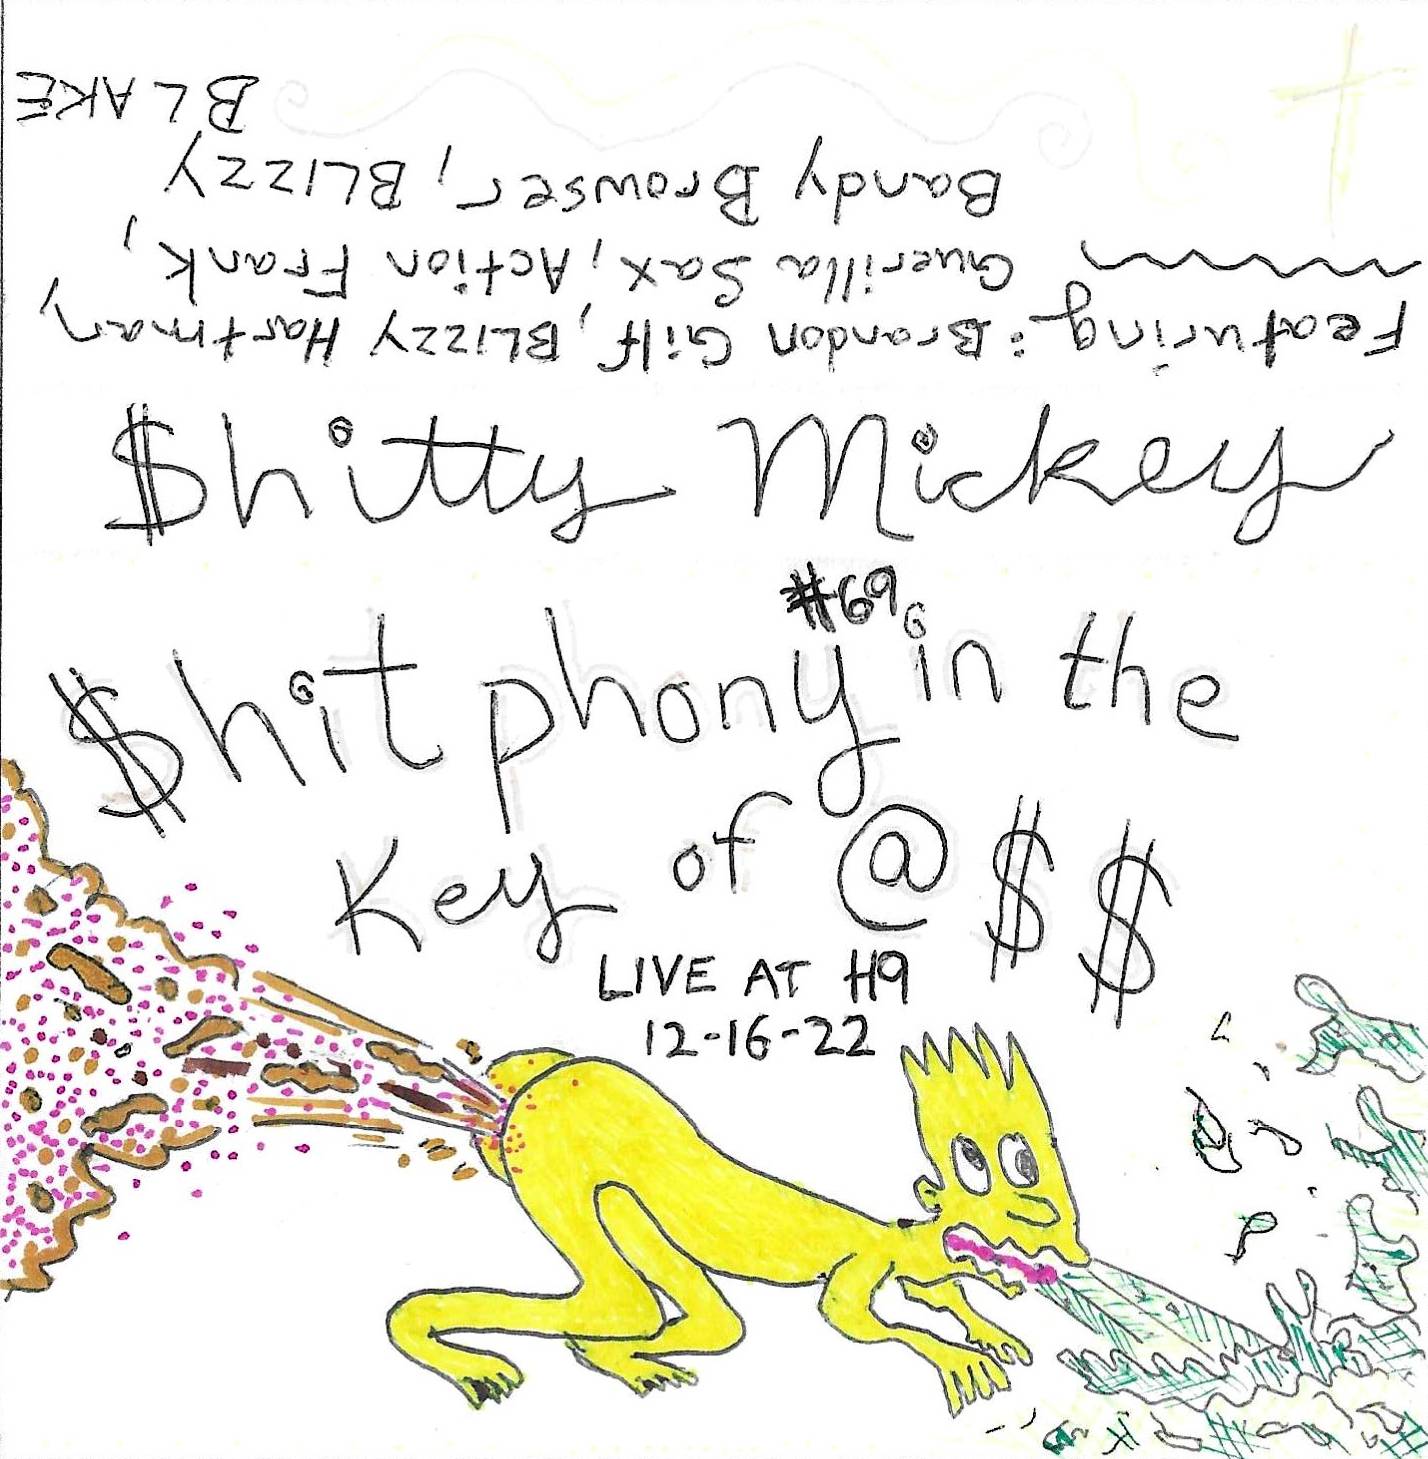 Featuring: Brandon Gilf, BLIZZY Hartman,
Guerilla Sax, Action Frank,
Bandy Browser, BLIZZY
BLAKE
$hitty Mickey
#69
$hitphony in the
Key of @$$
LIVE AT H9
12-16-22